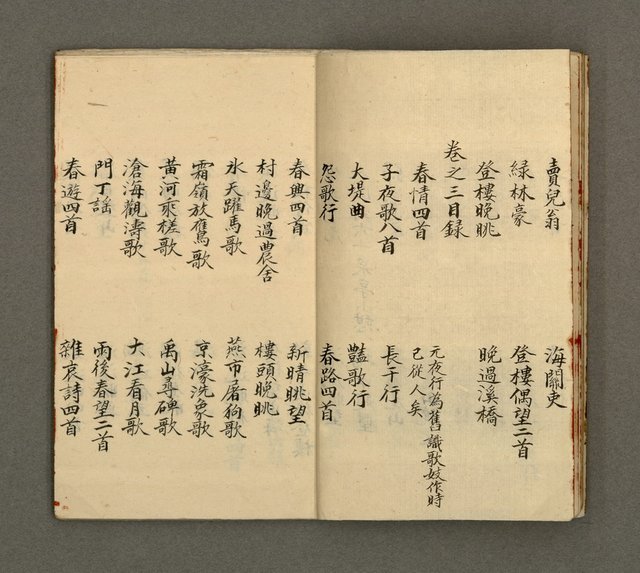 賣兒翁 海關吏
綠林豪 登樓偶望二首
登樓晚眺 晚過溪橋
卷之三目録
春情四首 元夜行為舊識歌妓作時
已從人矣
子夜歌八首 長干行
大堤曲 豔歌行
怨歌行 春路四首
春興四首 新晴眺望
村邊晚過農舍 樓頭晚眺
氷天躍馬歌 燕市屠狗歌
霜嶺放鷹歌 京濠洗象歌
黃河乘槎歌 禹山尋碑歌
滄海觀濤歌 大江看月歌
門丁謠 雨後春望二首
春遊四首 雜哀詩四首